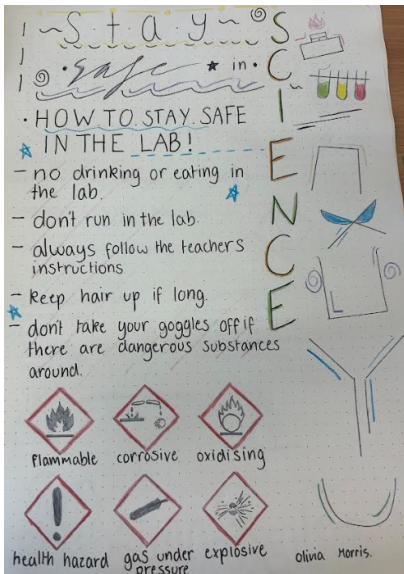 Stay
safe in
SCIENCE
· HOW TO STAY SAFE
IN THE LAB!
- no drinking or eating in
the lab.
- don't run in the lab.
- always follow the teachers
instructions
- keep hair up if long.
- don't take your goggles off if
there are dangerous substances
around.
flammable corrosive oxidising
health hazard gas under pressure explosive
Olivia Morris.